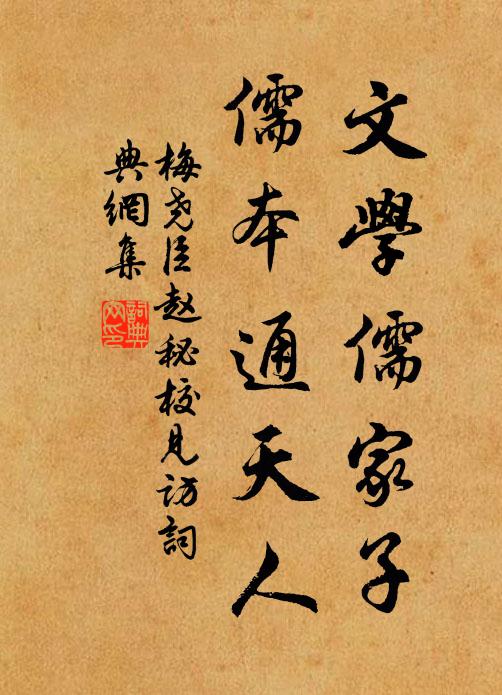 文學儒家子
儒本通天人
梅尧臣赵秘校见访詞
典網集
詞典
网印